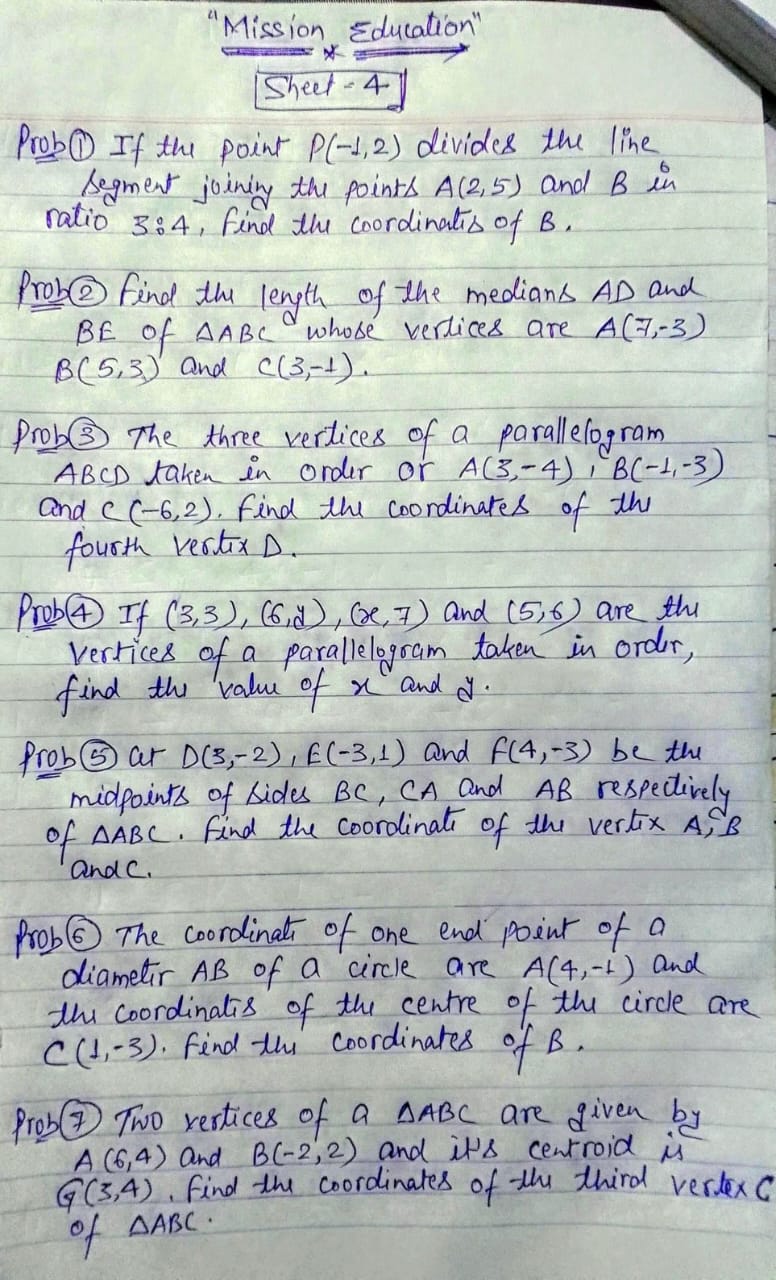 "Mission Education"
Sheet - 4
Prob① If the point P(-1,2) divides the line
segment joining the points A(2,5) and B in
ratio 3:4, find the coordinates of B.
Prob② find the length of the medians AD and
BE of △ABC whose vertices are A(7,-3)
B(5,3) and C(3,-1).
Prob③ The three vertices of a parallelogram
ABCD taken in order or A(3,-4), B(-1,-3)
and C(-6,2). find the coordinates of the
fourth vertix D.
Prob④ If (3,3), (6,y), (x,7) and (5,6) are the
vertices of a parallelogram taken in order,
find the value of x and y.
Prob⑤ let D(3,-2), E(-3,1) and F(4,-3) be the
midpoints of sides BC, CA and AB respectively
of △ABC. find the coordinate of the vertix A, B
and C.
Prob⑥ The coordinate of one end point of a
diameter AB of a circle are A(4,-1) and
the coordinates of the centre of the circle are
C(1,-3). find the coordinates of B.
Prob⑦ Two vertices of a △ABC are given by
A(6,4) and B(-2,2) and it's centroid is
G(3,4). find the coordinates of the third vertex C
of △ABC.